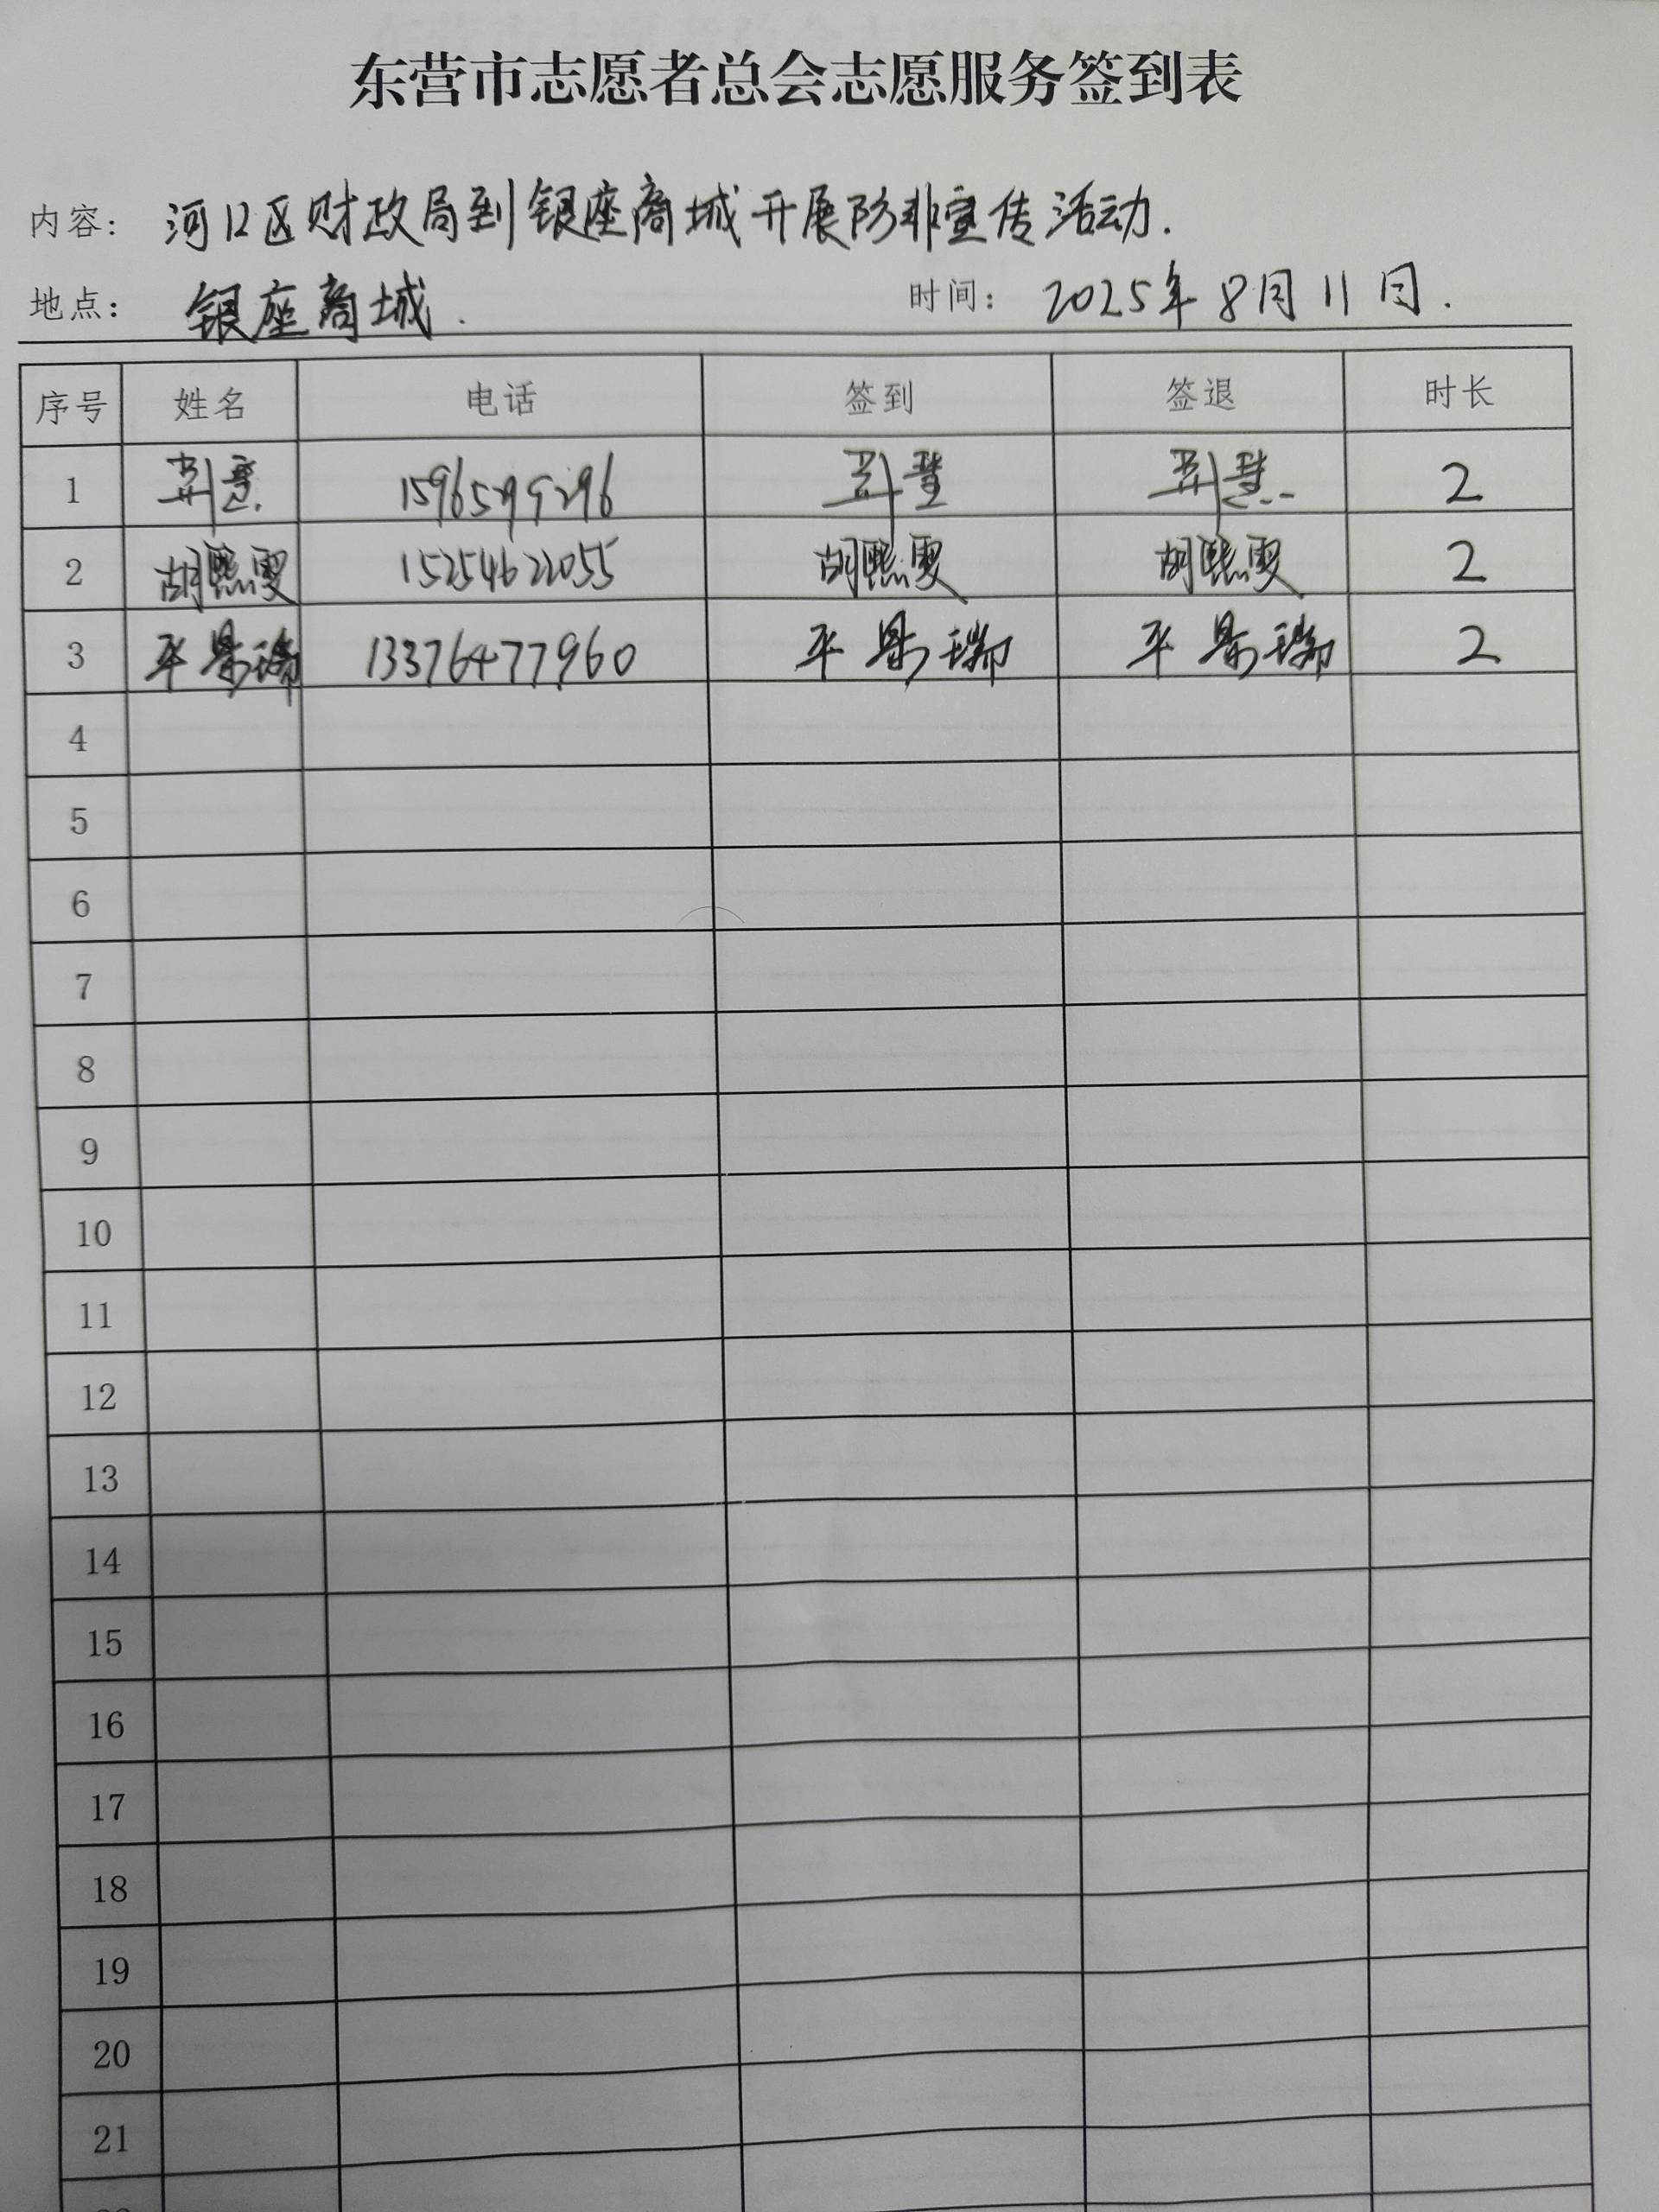 东营市志愿者总会志愿服务签到表
内容: 河口区财政局到银座商城开展防非宣传活动.
地点: 银座商城. 时间: 2025年8月11日.
序号 姓名 电话 签到 签退 时长
1 慧 慧 慧 2
2 胡熙雯 15254622055 胡熙雯 胡熙雯 2
3 平景瑞 13376477960 平景瑞 平景瑞 2
4
5
6
7
8
9
10
11
12
13
14
15
16
17
18
19
20
21